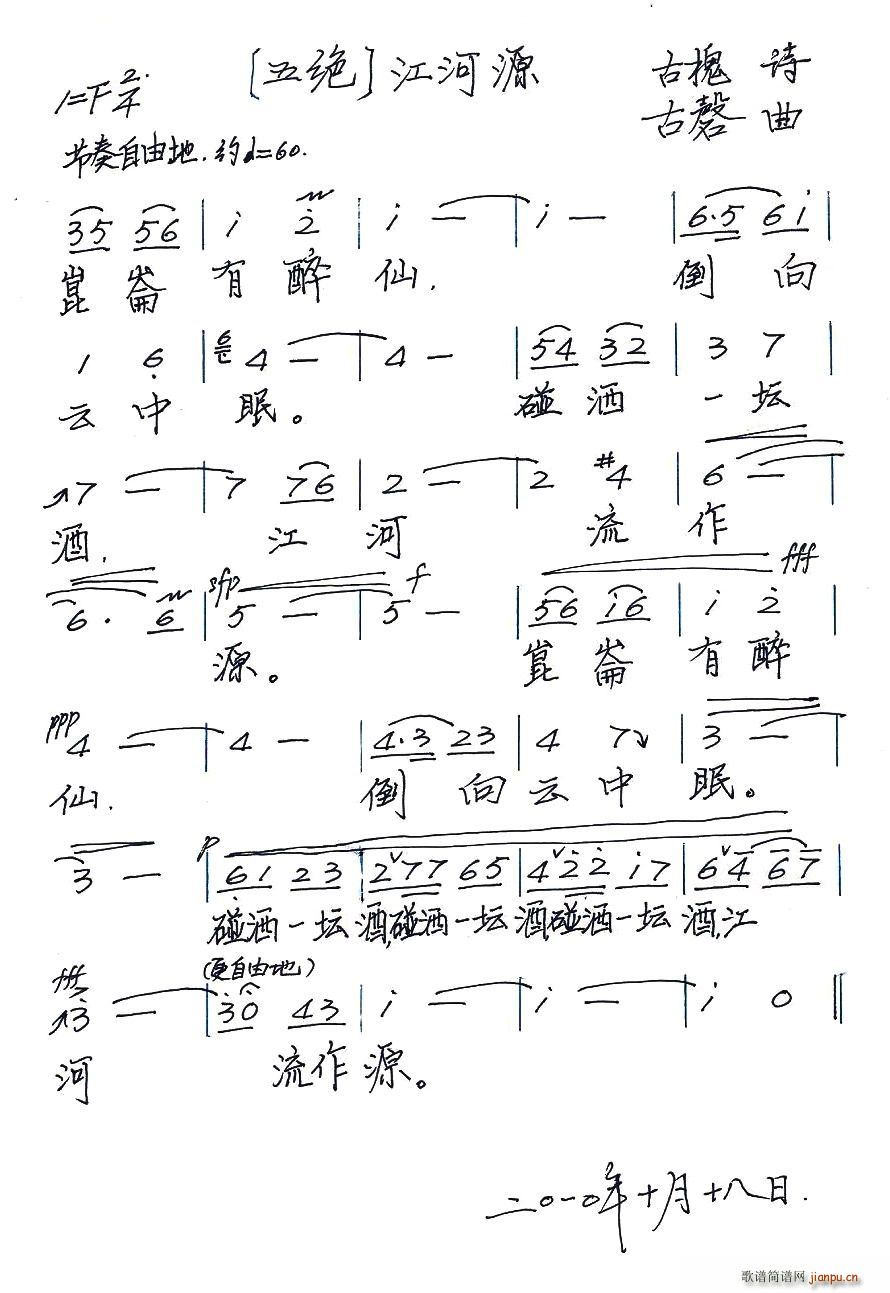 [五绝]江河源
古槐 诗
1=F 2/4
古磬 曲
节奏自由地.约d=60.
35 56 | i 2̇ | i — | i — | 6·5 6i |
崑崙有醉仙. 倒向
1 6̣ | 4 — | 4 — | 54 32 | 3 7 |
云中眠。 碰洒一坛
↗7 — | 7 76 | 2 — | 2 #4 | 6 — |
酒. 江河 流作
sfp f fff
6· 6 | 5 — | 5 — | 56 i6 | i 2̇ |
源。 崑崙有醉
ppp
4 — | 4 — | 4·3 23 | 4 7↘ | 3 — |
仙. 倒向云中眠。
p
3 — | 6̣1 23 | 2∨77 65 | 4∨2̇2̇ i7 | 6∨4̇ 6̇7̇ |
碰洒一坛酒,碰洒一坛酒,碰洒一坛酒,江
(更自由地)
fff
↗3̇ — | 3̇0 43 | i — | i — | i 0 ‖
河 流作源。
二0一0年十月十八日.
歌谱简谱网 jianpu.cn